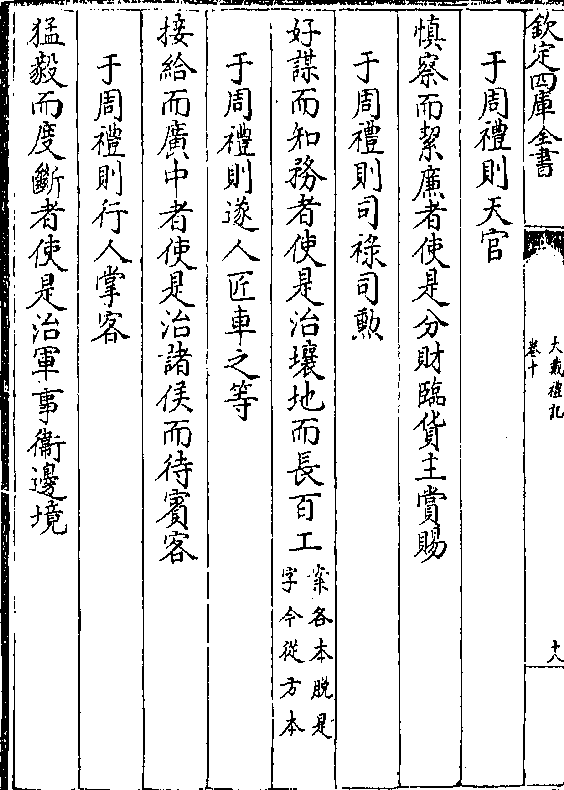 欽定四庫全書
大戴禮記
卷十
十八
于周禮則天官
慎察而絜廉者使是分財臨貨主賞賜
于周禮則司祿司勲
好謀而知務者使是治壤地而長百工案各本脱是
字今從方本
于周禮則遂人匠車之等
接給而廣中者使是治諸侯而待賓客
于周禮則行人掌客
猛毅而度斷者使是治軍事衞邊境